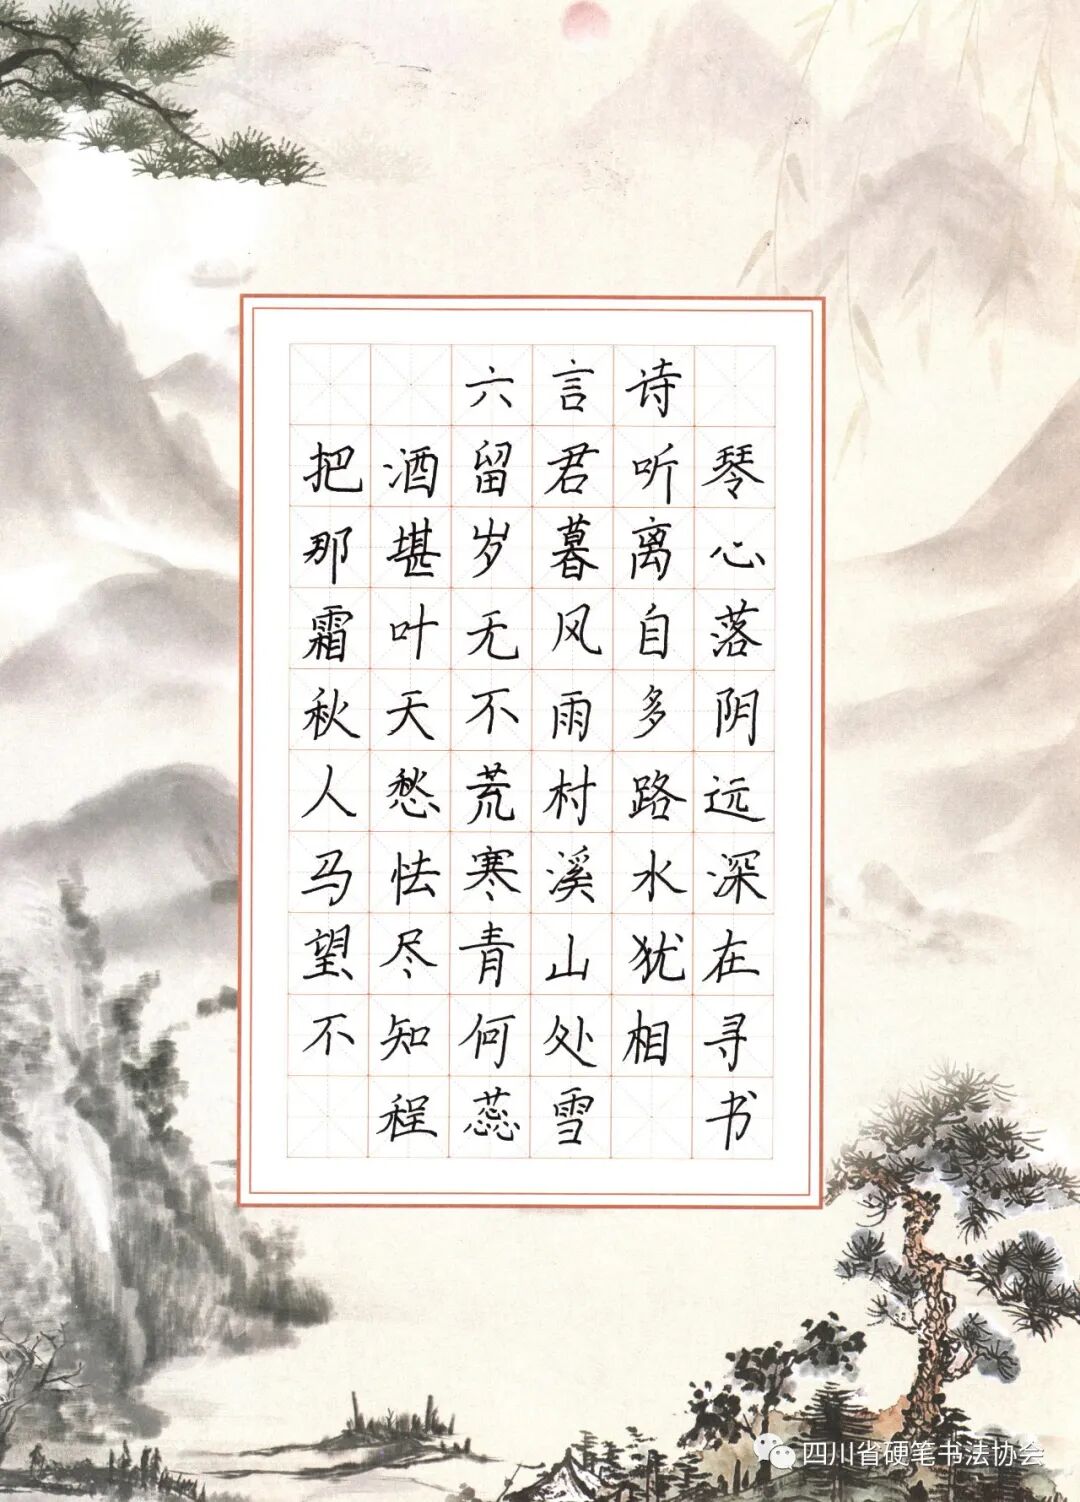 六言诗
把酒留君听琴
那堪岁暮离心
霜叶无风自落
秋天不雨多阴
人愁荒村路远
马怯寒溪水深
望尽青山犹在
不知何处相寻
程蕊雪 书
四川省硬笔书法协会